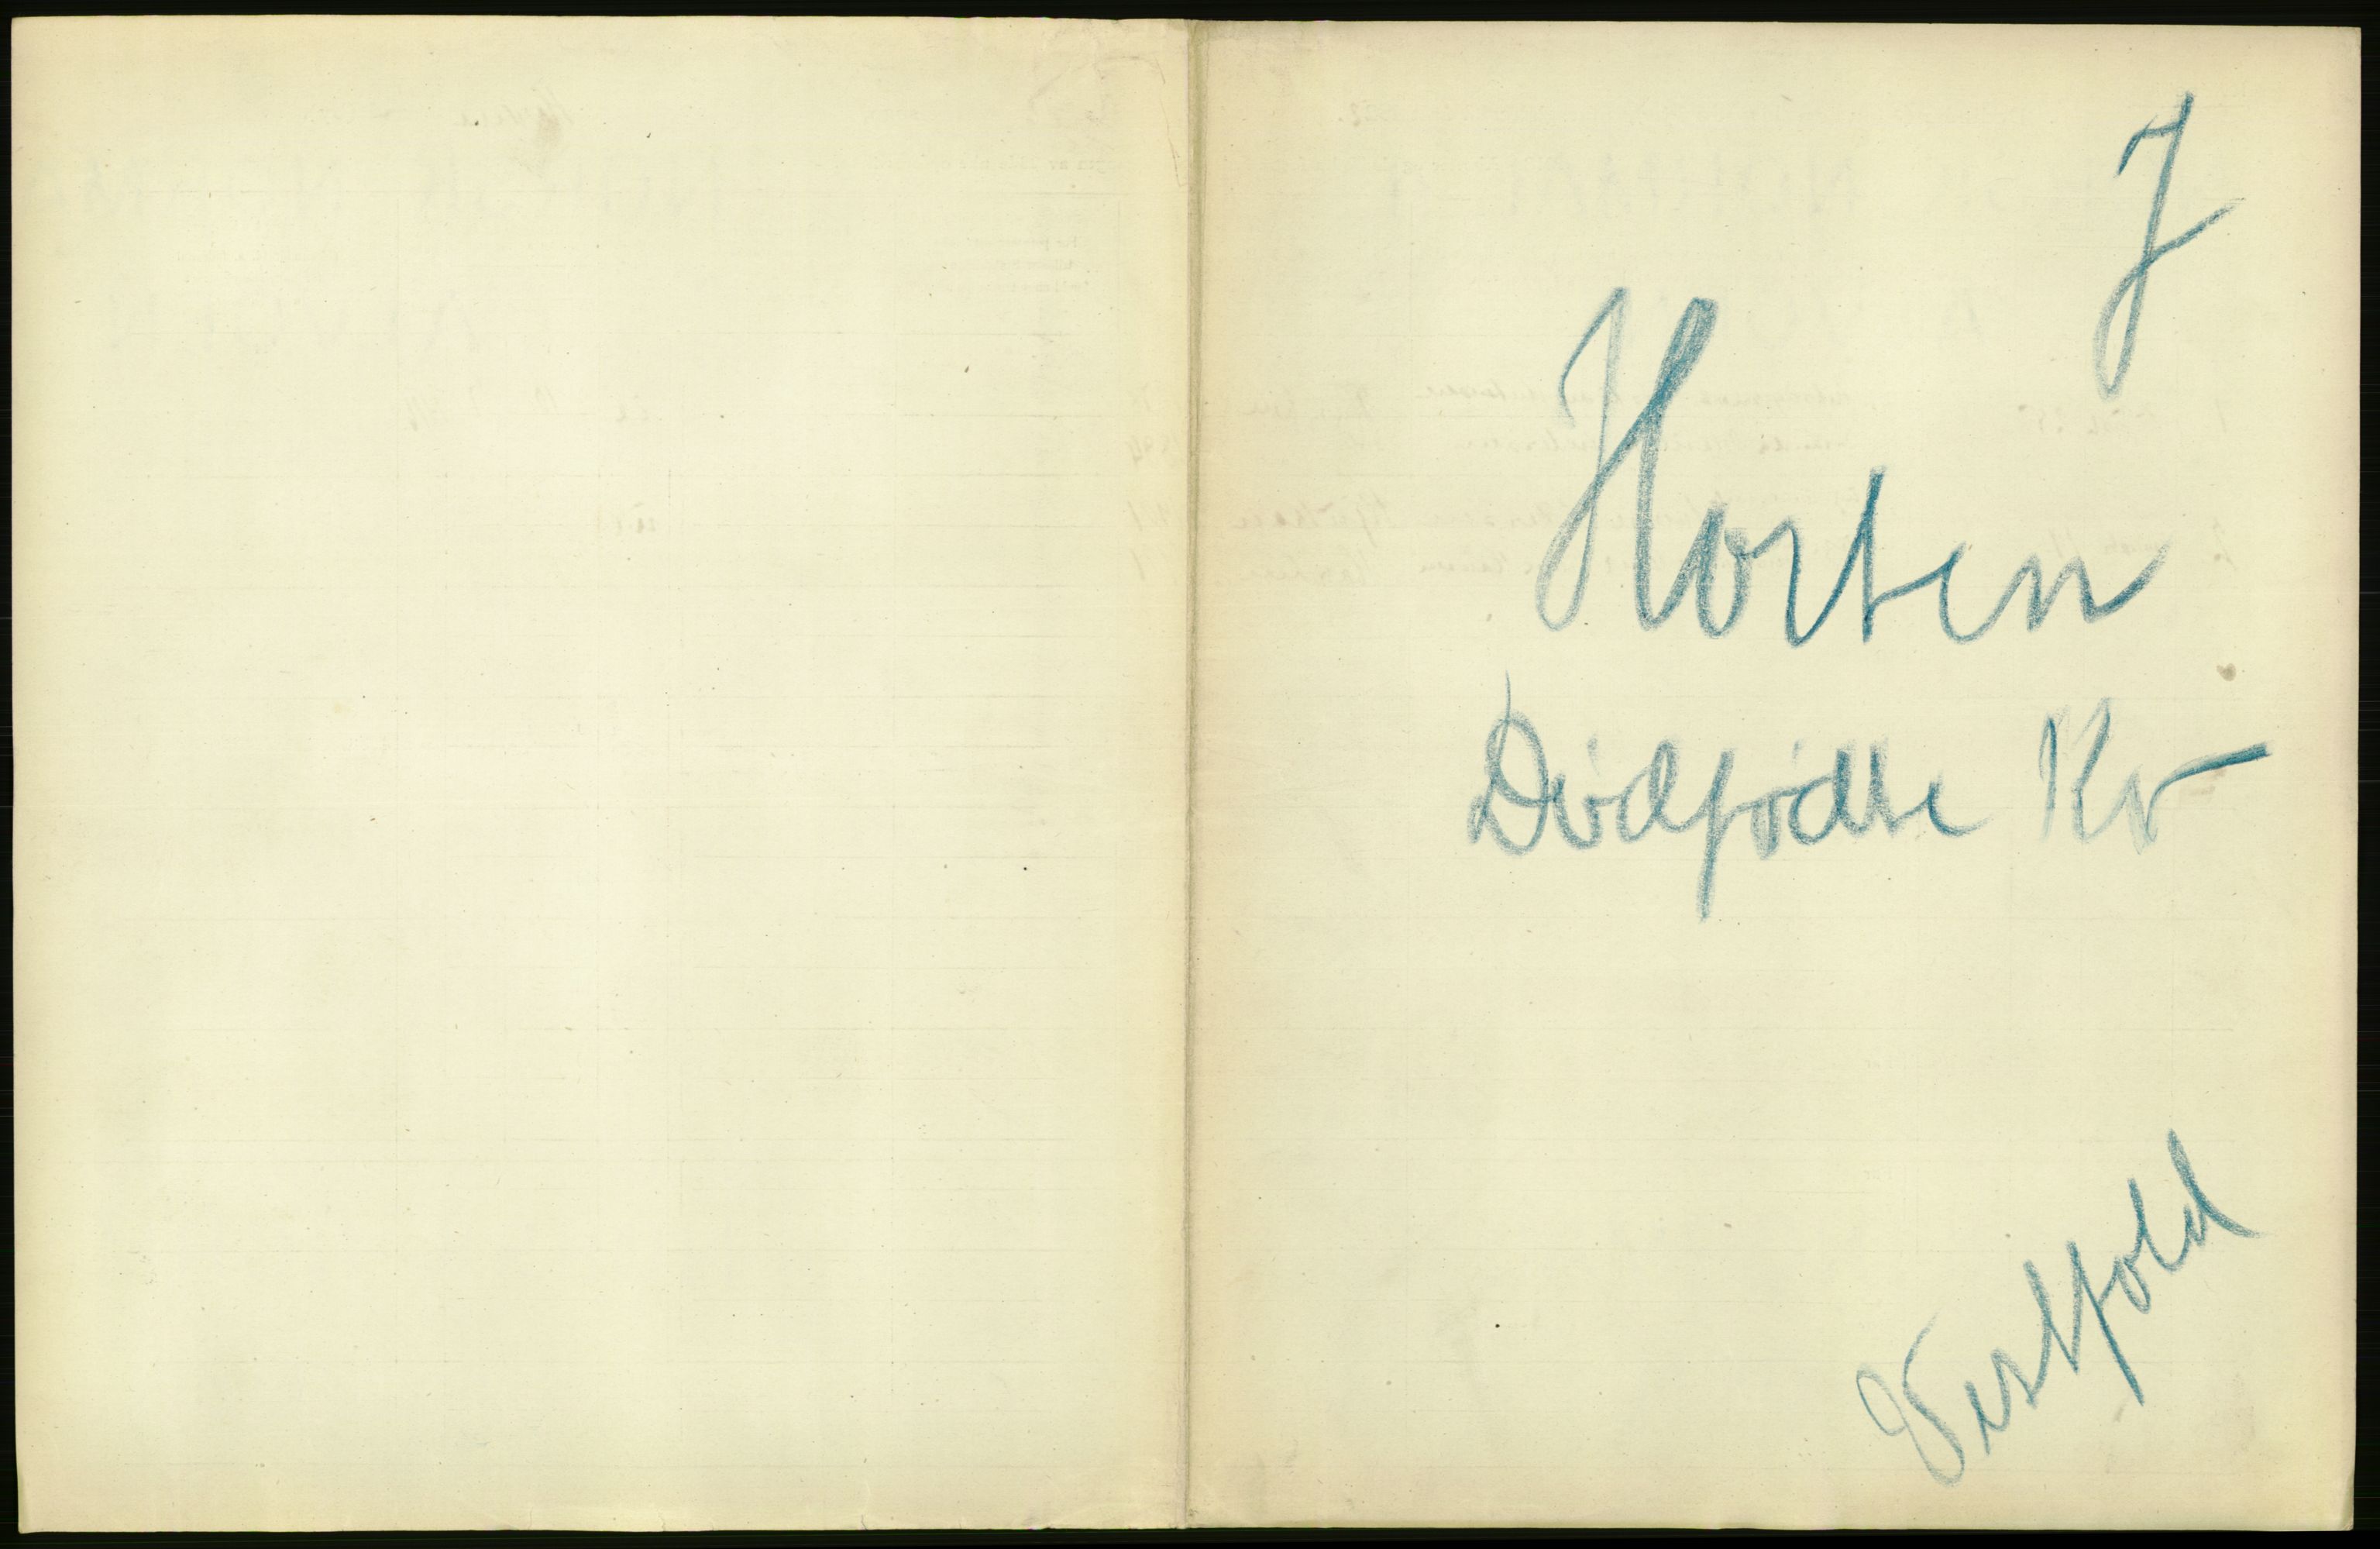 7
Horten
Dødfødte Kv
Vestfold